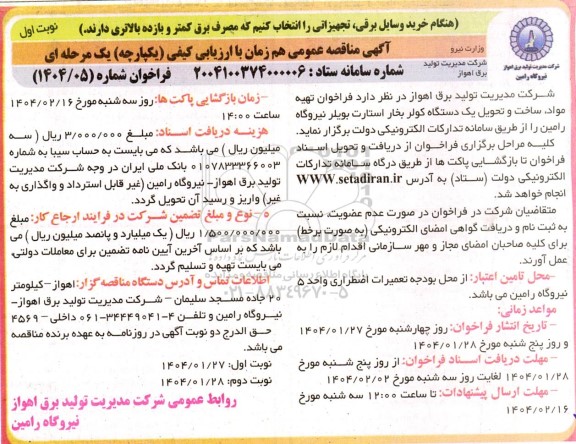 (هنگام خرید وسایل برقی، تجهیزاتی را انتخاب کنیم که مصرف برق کمتر و بازده بالاتری دارند.)
نوبت اول
وزارت نیرو
شرکت مدیریت تولید
برق اهواز
آگهی مناقصه عمومی هم زمان با ارزیابی کیفی (یکپارچه) یک مرحله ای
شماره سامانه ستاد : ۲۰۰۴۱۰۰۳۷۴۰۰۰۰۰۶ فراخوان شماره (۱۴۰۴/۰۵)
شرکت مدیریت تولید برق اهواز
نیروگاه رامین
شرکت مدیریت تولید برق اهواز در نظر دارد فراخوان تهیه
مواد، ساخت و تحویل یک دستگاه کولر بخار استارت بویلر نیروگاه
رامین را از طریق سامانه تدارکات الکترونیکی دولت برگزار نماید.
کلیه مراحل برگزاری فراخوان از دریافت و تحویل اسناد
فراخوان تا بازگشایی پاکت ها از طریق درگاه سامانه تدارکات
الکترونیکی دولت (ستاد) به آدرس WWW.setadiran.ir
انجام خواهد شد.
متقاضیان شرکت در فراخوان در صورت عدم عضویت، نسبت
به ثبت نام و دریافت گواهی امضای الکترونیکی (به صورت برخط)
برای کلیه صاحبان امضای مجاز و مهر سازمانی اقدام لازم را به
عمل آورند.
-محل تامین اعتبار: از محل بودجه تعمیرات اضطراری واحد ۵
نیروگاه رامین می باشد.
مواعد زمانی:
- تاریخ انتشار فراخوان: روز چهارشنبه مورخ ۱۴۰۴/۰۱/۲۷
و روز پنج شنبه مورخ ۱۴۰۴/۰۱/۲۸
- مهلت دریافت اسناد فراخوان: از روز پنج شنبه مورخ
۱۴۰۴/۰۱/۲۸ لغایت روز سه شنبه مورخ ۱۴۰۴/۰۲/۰۲
- مهلت ارسال پیشنهادات: تا ساعت ۱۲:۰۰ سه شنبه مورخ
۱۴۰۴/۰۲/۱۶
-زمان بازگشایی پاکت ها: روز سه شنبه مورخ ۱۴۰۴/۰۲/۱۶
ساعت ۱۴:۰۰
هزینه دریافت اسناد: مبلغ ۳/۰۰۰/۰۰۰ ریال ( سه
میلیون ریال ) می باشد که می بایست به حساب سیبا به شماره
۰۱۰۷۸۳۳۳۶۶۰۰۳ بانک ملی ایران در وجه شرکت مدیریت
تولید برق اهواز- نیروگاه رامین (غیر قابل استرداد و واگذاری به
غیر) واریز و رسید آن تحویل گردد.
o نوع و مبلغ تضمین شرکت در فرایند ارجاع کار: مبلغ
۱/۵۰۰/۰۰۰/۰۰۰ ریال (یک میلیارد و پانصد میلیون ریال ) می
باشد که بر اساس آخرین آیین نامه تضمین برای معاملات دولتی،
می بایست تهیه و تسلیم گردد.
اطلاعات تماس و آدرس دستگاه مناقصه گزار: اهواز-کیلومتر
۲۰ جاده مسجد سلیمان – شرکت مدیریت تولید برق اهواز-
نیروگاه رامین و تلفن ۴-۳۴۴۴۹۰۴۱-۰۶۱ داخلی – ۴۵۶۹
حق الدرج دو نوبت آگهی در روزنامه به عهده برنده مناقصه
می باشد.
نوبت اول: ۱۴۰۴/۰۱/۲۷
نوبت دوم: ۱۴۰۴/۰۱/۲۸
روابط عمومی شرکت مدیریت تولید برق اهواز
نیروگاه رامین
ParsNamadData
۰۲۱-۸۸۳۴۹۶۷۰-۵